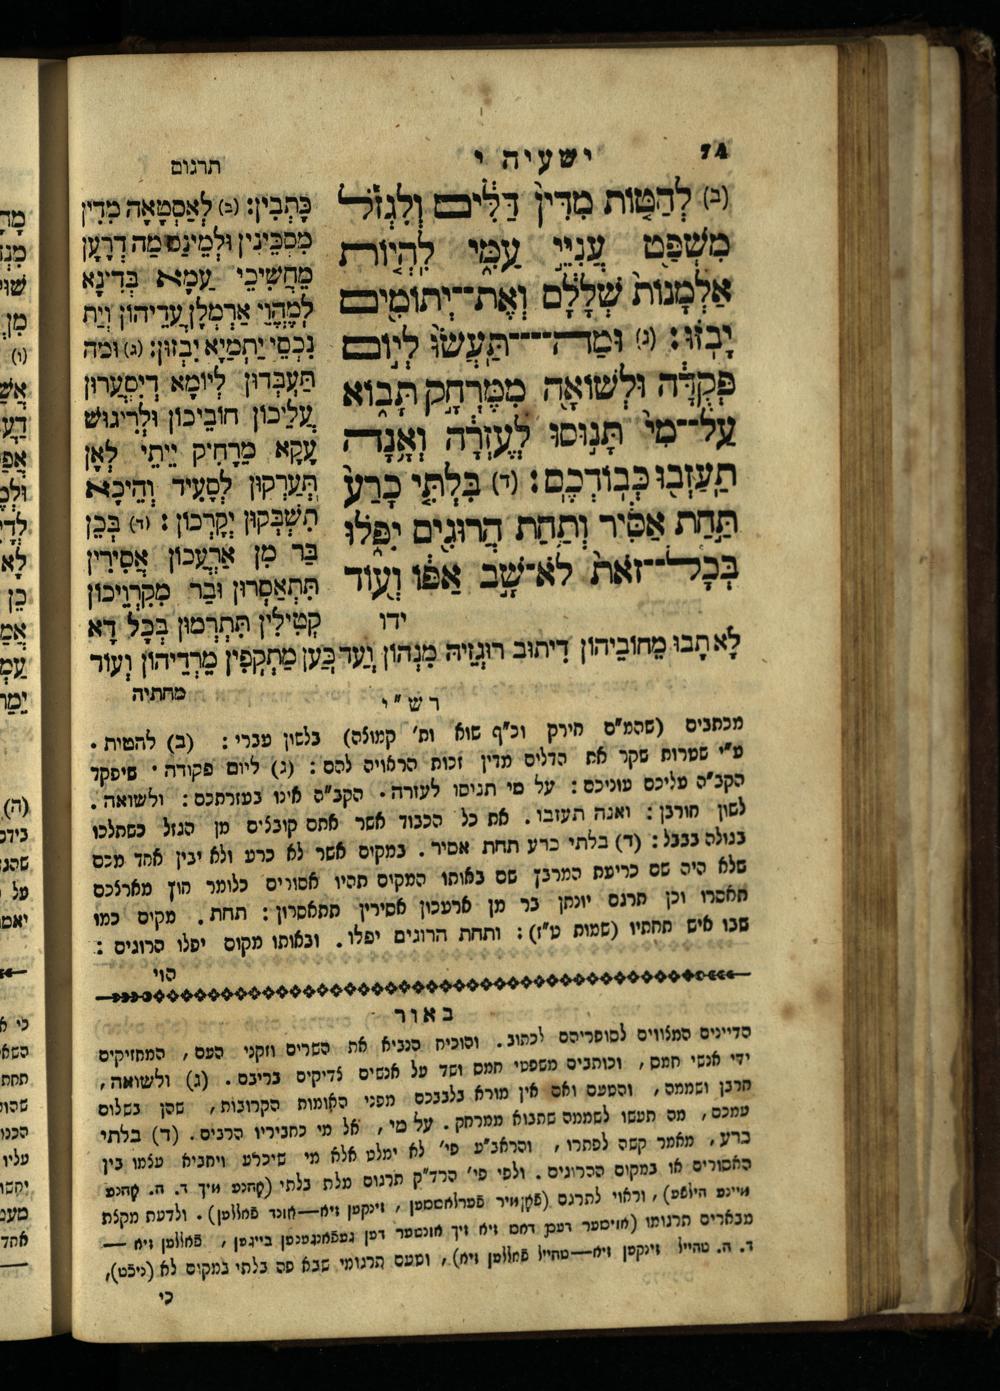 74
ישעיה י
תרגום
(ב) לְהַטּוֹת מִדִּין֙ דַּלִּ֔ים וְלִגְזֹ֕ל
מִשְׁפַּ֖ט עֲנִיֵּ֣י עַמִּ֑י לִֽהְי֤וֹת
אַלְמָנוֹת֙ שְׁלָלָ֔ם וְאֶת־יְתוֹמִ֖ים
יָבֹֽזּוּ׃ (ג) וּמַה־תַּֽעֲשׂוּ֙ לְי֣וֹם
פְּקֻדָּ֔ה וּלְשׁוֹאָ֖ה מִמֶּרְחָ֣ק תָּב֑וֹא
עַל־מִי֙ תָּנ֣וּסוּ לְעֶזְרָ֔ה וְאָ֥נָה
תַעַזְב֖וּ כְּבֽוֹדְכֶֽם׃ (ד) בִּלְתִּ֤י כָרַע֙
תַּ֣חַת אַסִּ֔יר וְתַ֥חַת הֲרוּגִ֖ים יִפֹּ֑לוּ
בְּכָל־זֹאת֙ לֹא־שָׁ֣ב אַפּ֔וֹ וְע֖וֹד
ידו
כָּתְבִין׃ (ב) לְאַסְטָאָה מִדִּין
מִסְכֵּינִין וּלְמֵינַס מַה דְרָעֵן
מַחֲשִׁיכֵי עַמָּא בְּדִינָא
לְמֶהֱוֵי אַרְמְלָן עֲדֵיהוֹן וְיַת
נִכְסֵי יַתְמַיָּא יִבְזוּן׃ (ג) וּמה
תַּעְבְּדוּן לְיוֹמָא דְיִסְעֲרוּן
עֲלֵיכוֹן חוֹבֵיכוֹן וּלְרִיגוּשׁ
עָקָא מֵרָחִיק יֵיתֵי לְאָן
תְּעַרְקוּן לְסָעִיד וְהֵיכָא
תִשְׁבְּקוּן יְקָרְכוֹן׃ (ד) בְּכֵן
בַּר מִן אַרְעֲכוֹן אֲסִירִין
תִּתְאַסְרוּן וּבַר מִקִּרְוֵיכוֹן
קְטִילִין תִּתְרְמוּן בְּכָל דָּא
לָא תָבוּ מֵחוֹבֵיהוֹן דִיתוּב רוּגְזֵיהּ מִנְהוֹן וְעַד כְּעַן מַתְקְפִין מֵרְדֵיהוֹן וְעוֹד
מחתיה
רש"י
מכתבים (שהמ"ס חירק וכ"ף שוא ות' קמולה) בלשון עברי: (ב) להטות.
ע"י שטרות שקר את הדלים מדין זכות הראויה להם: (ג) ליום פקודה. שיפקד
הקב"ה עליכם עוניכם: על מי תנוסו לעזרה. הקב"ה אינו בעזרתכם: ולשואה.
לשון חורבן: ואנה תעזבו. את כל הכבוד אשר אתם קובלים מן הגזל כשתלכו
בגולה בבבל: (ד) בלתי כרע תחת אסיר. במקום אשר לא כרע ולא יבין אחד מכם
שלא היה שם כריעת המרבץ שם באותו המקום תהיו אסורים כלומר חוץ מארלכם
תאסרו וכן תרגם יונתן בר מן ארעכון אסירין תתאסרון: תחת. מקום כמו
שבו איש תחתיו (שמות ט"ז): ותחת הרוגים יפלו. ובאותו מקום יפלו הרוגים:
הוי
באור
הדיינים המלווים לסופריהם לכתוב. והוכיח הנביא את השרים וזקני העם, המחזיקים
ידי אנשי חמס, וכותבים משפטי חמס ושד על אנשים לדיקים בריבם. (ג) ולשואה,
חרבן ושממה, והטעם ואם אין מורא בלבבכם מפני האומות הקרובות, שהן בשלום
עמכם, מה תעשו לשממה שתבוא ממרחק. על מי, אל מי כחביריו הרבים. (ד) בלתי
כרע, מאמר קשה לפתרו, והראב"ע פי' לא ימלט אלא מי שיכרע ויחביא עלמו בין
האסורים או במקום ההרוגים. ולפי פי' הרד"ק תרגום מלת בלתי (אָהנע מיך ד. ה. אָהנע
מיינע הילפע), וראוי לתרגם (פֿאָן מיר פֿערלאססען, זינקען זיא—אונד פֿאללען). ולדעת מקלת
מבארים תרגומו (אויסער דעם דאס זיא זיך אונטער דען געפֿאנגענען בייגען, פֿאללען זיא —
ד. ה. טהייל זינקען זיא—טהייל פֿאללען זיא), וטעם תרגומי שבא פה בלתי במקום לא (ניכֿט),
כי